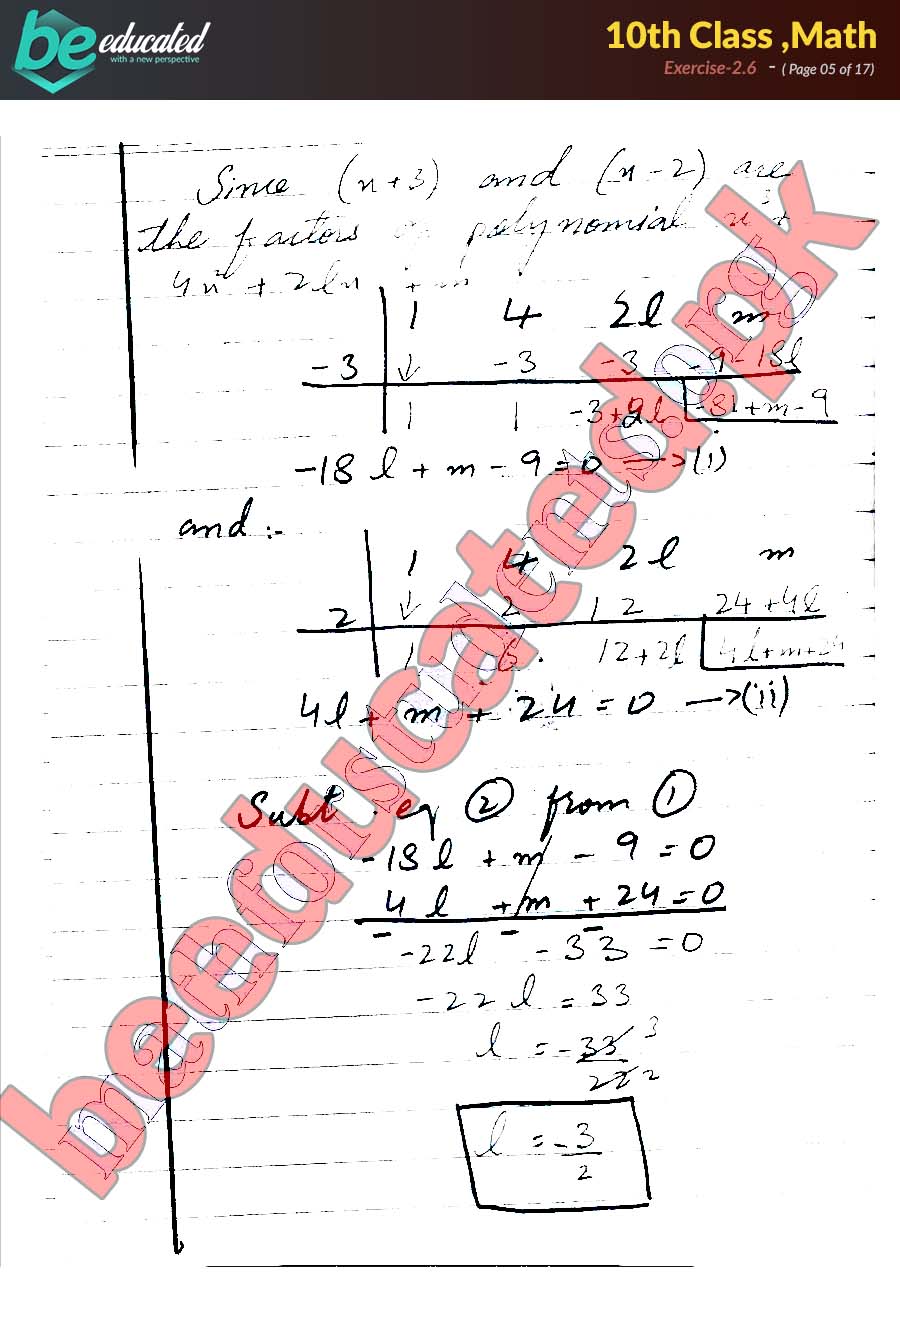 be educated
with a new perspective
10th Class ,Math
Exercise-2.6 - ( Page 05 of 17)
Since (x+3) and (x-2) are
the factors of polynomial x³+
4x² + 2lx + m
1 4 2l m
-3 ↓ -3 -3 -9-18l
1 1 -3+2l +m-9
-18l + m - 9 = 0 → (i)
and :-
1 4 2l m
2 ↓ 2 12 24+4l
1 6 12+2l 4l+m+24
4l + m + 24 = 0 → (ii)
Subt. eq ② from ①
-18l + m - 9 = 0
4l + m + 24 = 0
- - -
-22l - 33 = 0
-22l = 33
l = -33 3
22 2
l = -3
2
beeducated.pk